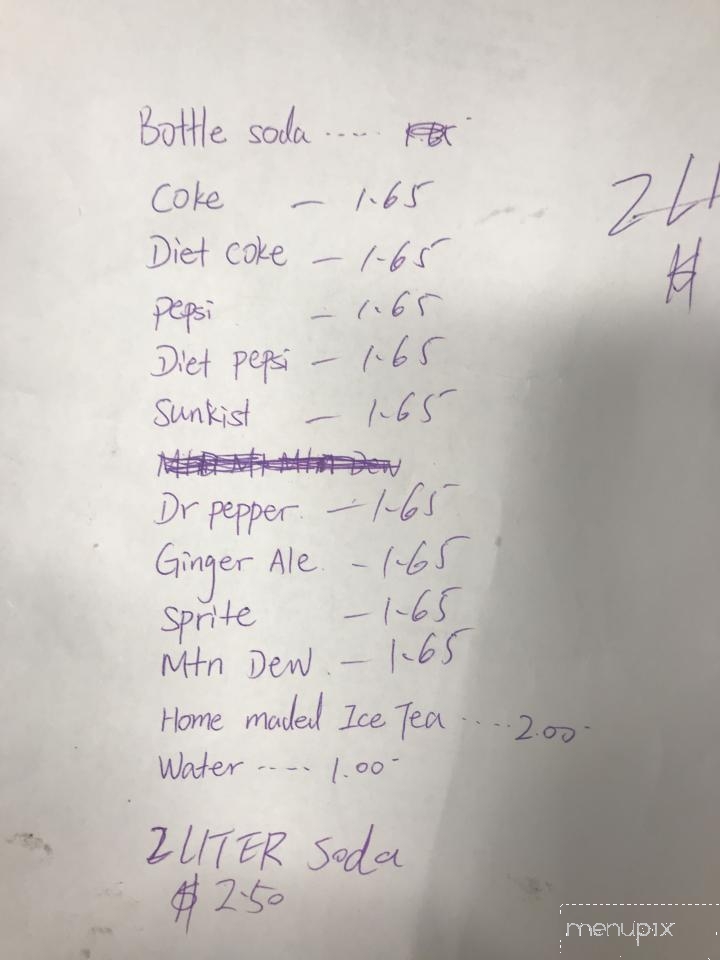 Bottle soda ----
Coke — 1.65
Diet coke — 1.65
pepsi — 1.65
Diet pepsi — 1.65
Sunkist — 1.65
Dr pepper. — 1.65
Ginger Ale. - 1.65
sprite — 1.65
Mtn Dew. — 1.65
Home maded Ice Tea ----2.00-
Water ---- 1.00-
2 LITER soda
$ 2.50
2 LI
$
menupix